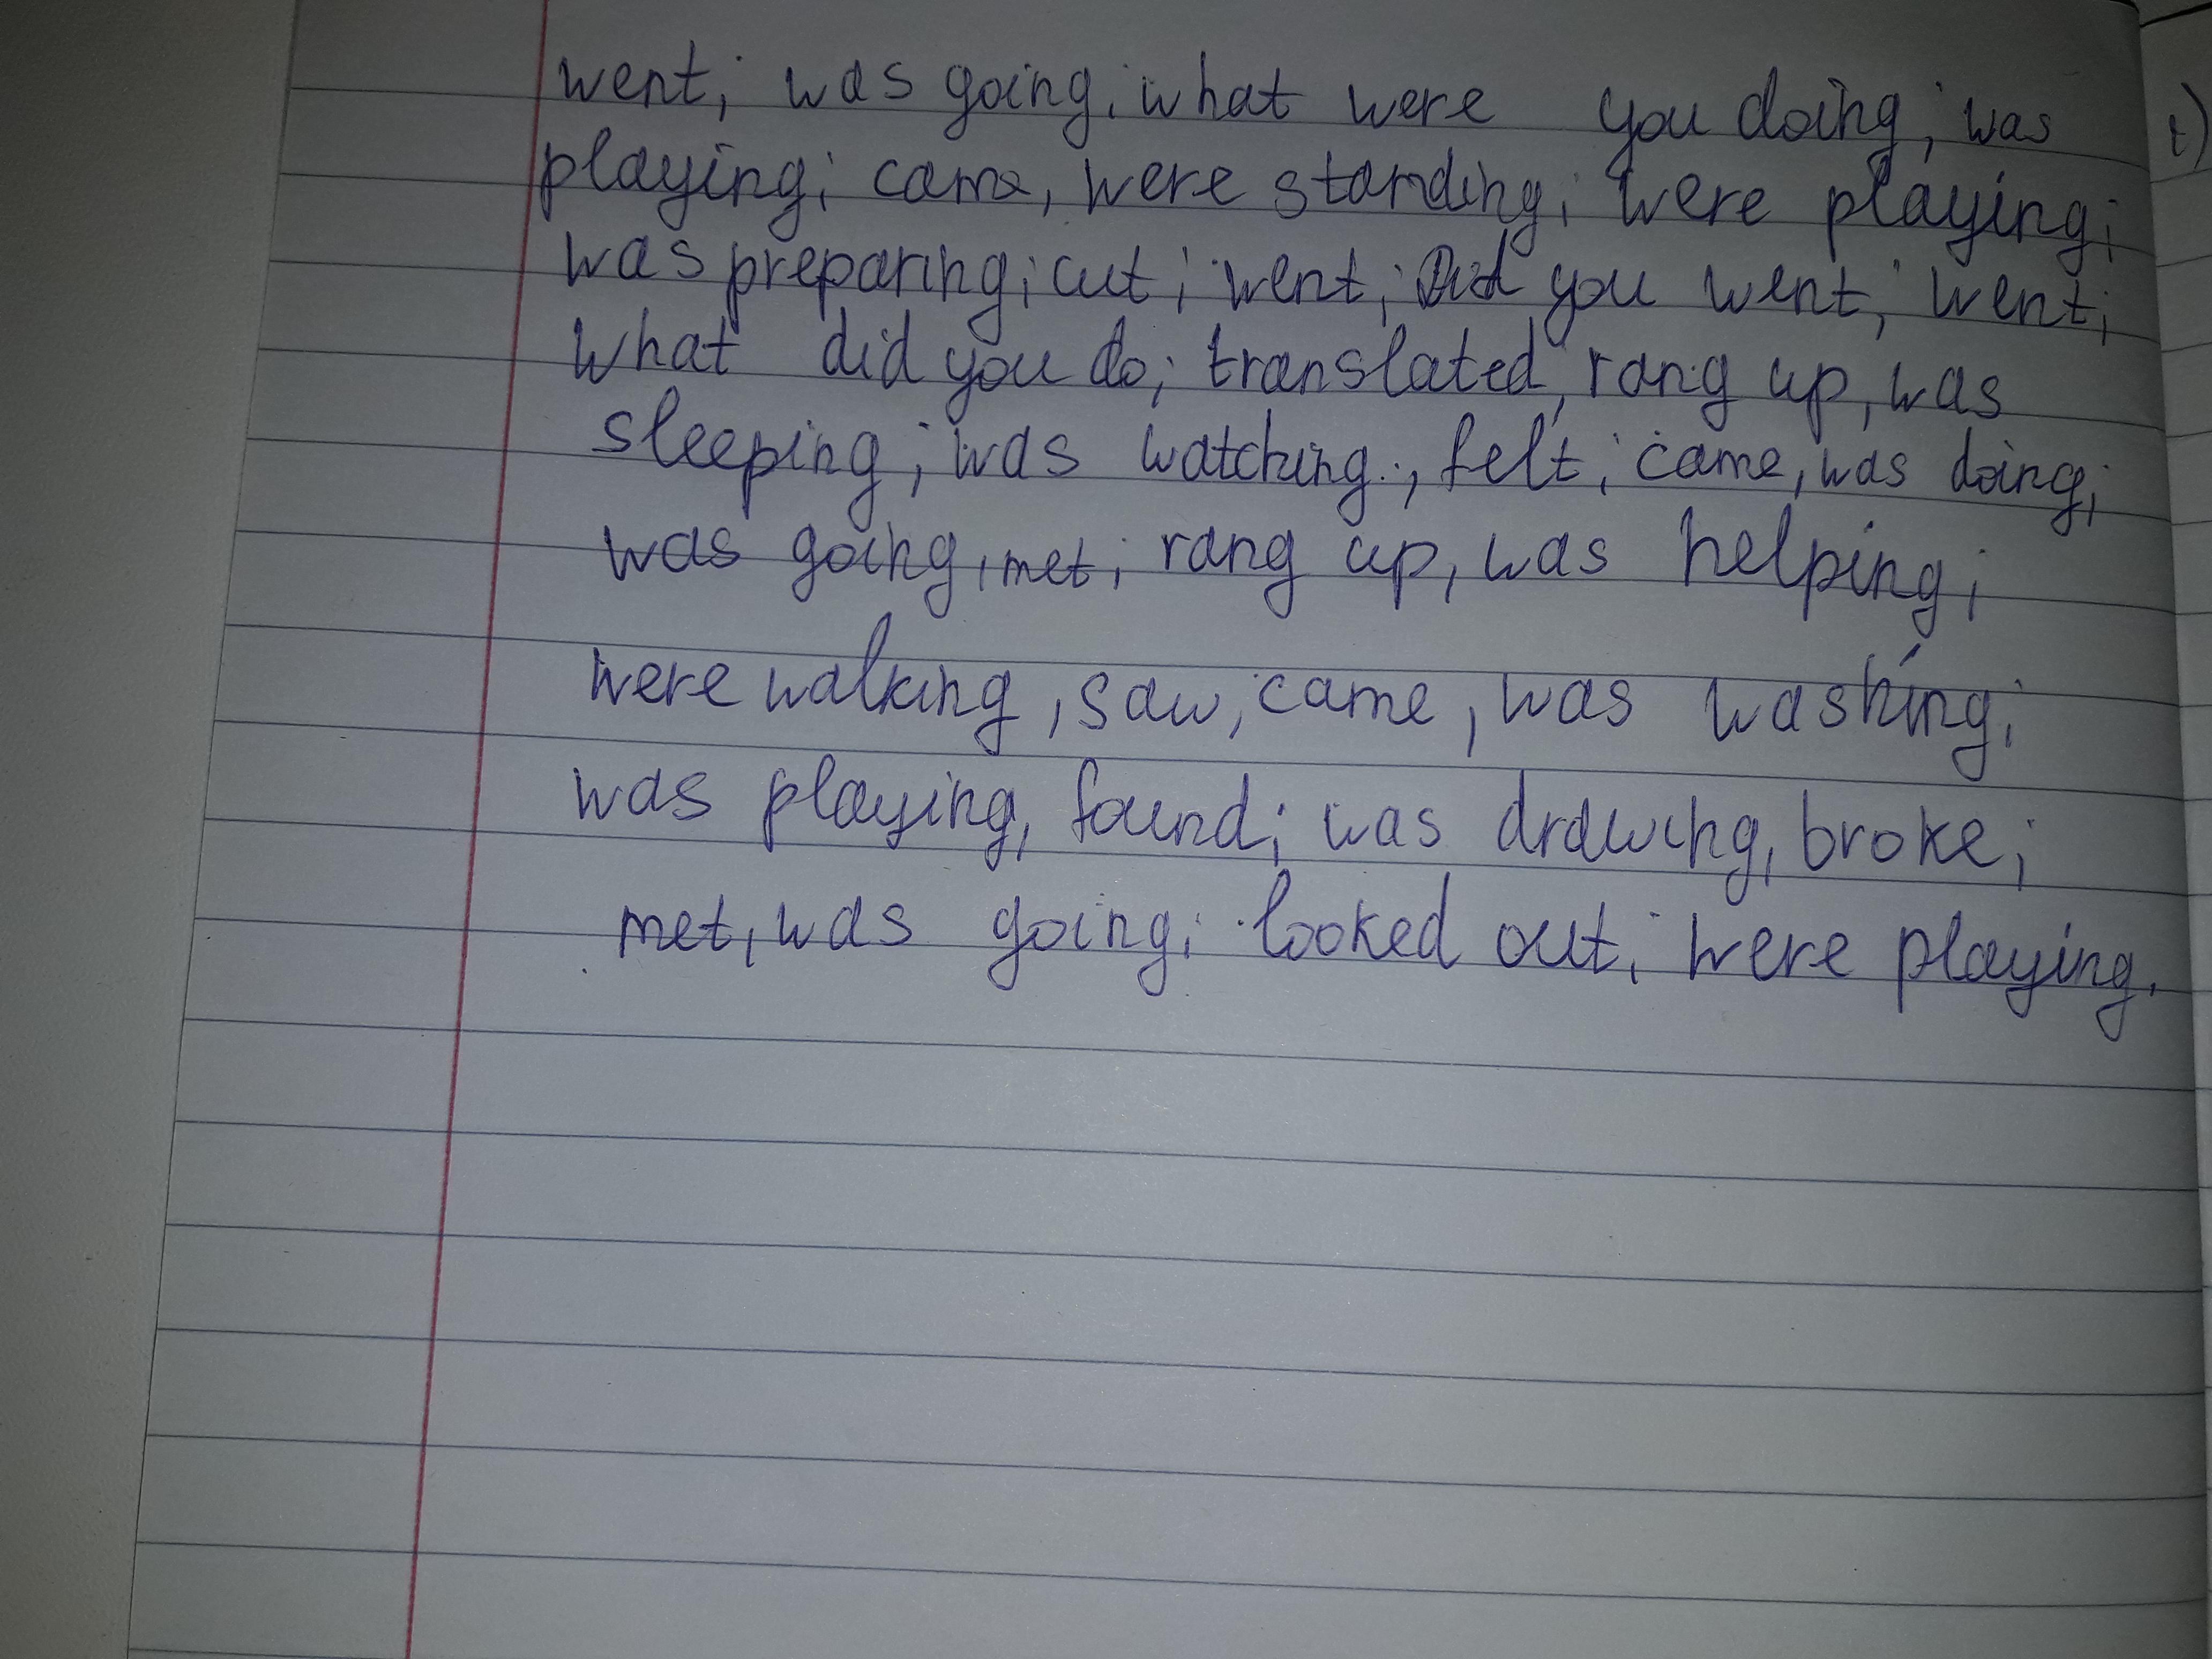 went; was going; what were you doing; was
playing; came, were standing; were playing;
was preparing; cut; went; Did you went; went;
what did you do; translated, rang up, was
sleeping; was watching; felt; came, was doing;
was going, met; rang up, was helping;
were walking, saw; came, was washing;
was playing, found; was drawing, broke;
met, was going; looked out; were playing.